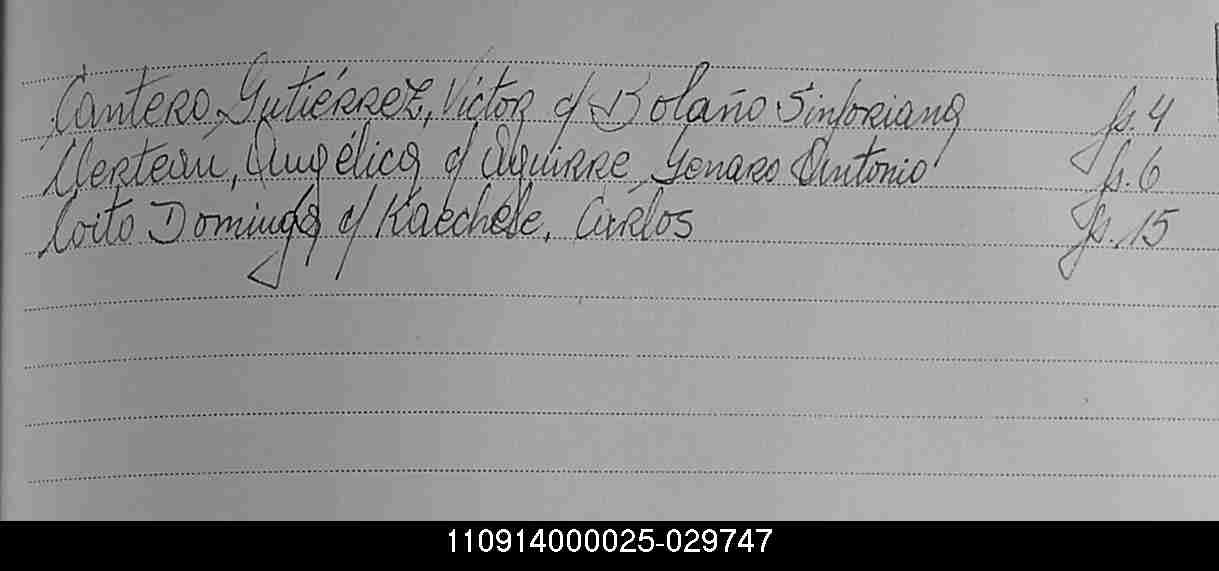 Cantero Gutiérrez, Víctor c/ Bolaño Sinforiana fs. 4
Angélica c/ Aguirre, Genaro Antonio fs. 6
Coito Dominga c/ Kaechele, Carlos fs. 15
110914000025-029747